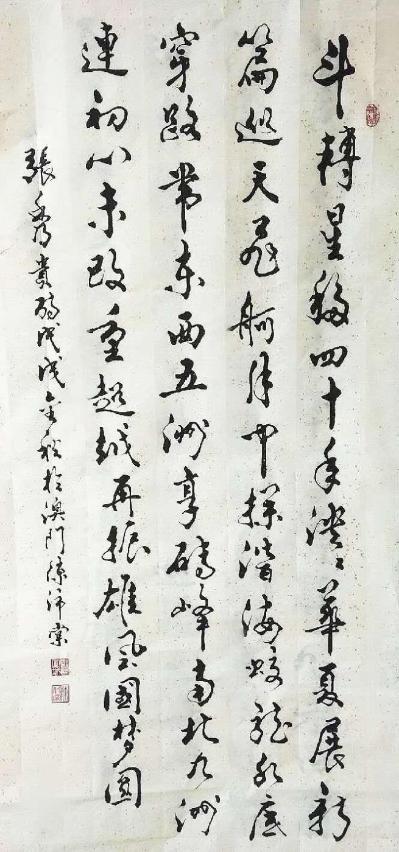 斗轉星移四十年泱〻華夏展新
篇巡天飛舸月中探潛海蛟龍水底
穿路帶東西五洲享磚峰南北九洲
連初心未改重超越再振雄風國梦圓
張秀貴詩戊戌金秋於澳門